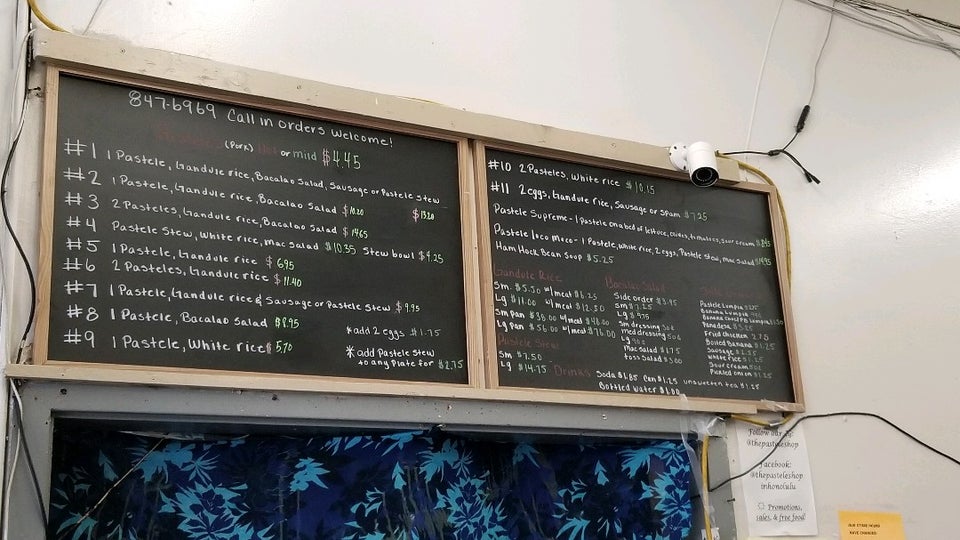 847-6969 Call in orders welcome!
(Pork) Hot or mild $4.45
#1 1 Pastele, Gandule rice, Bacalao Salad, Sausage or Pastele stew $13.20
#2 1 Pastele, Gandule rice, Bacalao Salad $10.20
#3 2 Pasteles, Gandule rice, Bacalao Salad $14.65
#4 Pastele Stew, White rice, Mac Salad $10.35 Stew bowl $9.25
#5 1 Pastele, Gandule rice $6.95
#6 2 Pasteles, Gandule rice $11.40
#7 1 Pastele, Gandule rice & Sausage or Pastele Stew $9.95
#8 1 Pastele, Bacalao Salad $8.95
#9 1 Pastele, White rice $5.70
*add 2 eggs $1.75
*add Pastele Stew
to any Plate for $2.75
#10 2 Pasteles, White rice $10.15
#11 2 eggs, Gandule rice, Sausage or Spam $7.25
Pastele Supreme - 1 Pastele on a bed of lettuce, olives, tomatoes, sour cream
Pastele loco moco - 1 Pastele, white rice, 2 eggs, Pastele stew, mac salad
Ham Hock Bean Soup $5.25
Gandule Rice
Sm. $5.50 w/meat $6.25
Lg $11.00 w/meat $12.50
Sm pan $38.00 w/meat $48.00
Lg pan $56.00 w/meat $76.00
Pastele Stew
Sm $7.50
Lg $14.75
Bacalao Salad
Side order $3.95
Sm $7.25
Lg $9.75
Sm dressing 50¢
med dressing
Lg 90¢
Mac Salad $1.75
toss Salad $3.00
Pastele Lumpia
Banana Lumpia
Banana Lumpia
Fried Chicken
Boiled Banana $1.25
Sausage
White rice $1.25
Sour Cream
Pickled onion $1.25
Drinks Soda $1.85 Can $1.25 unsweeten tea $1.25
Bottled water $1.00
Follow our IG:
@thepasteleshop
Facebook:
@thepasteleshop
inhonolulu
Promotions,
sales, & free food!
OUR STORE HOURS
HAVE CHANGED: